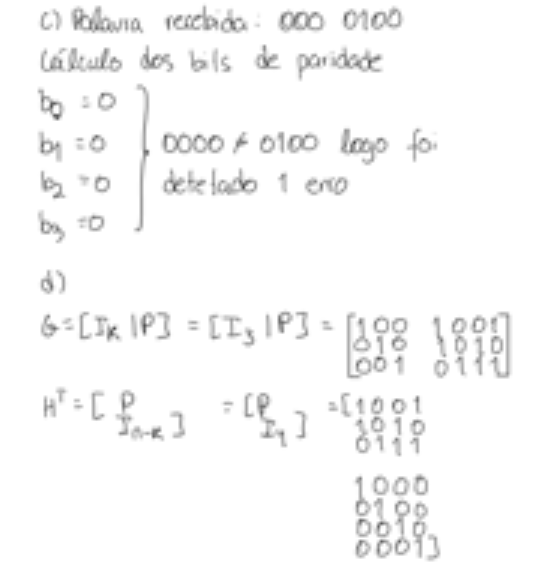 c) Palavra recebida: 000 0100
Cálculo dos bits de paridade
b0 = 0
b1 = 0
b2 = 0
b3 = 0
0000 ≠ 0100 logo foi
detetado 1 erro
d)
G = [Ik | P] = [I3 | P] = [100 1001
010 1010
001 0111]
H^T = [P
In-k] = [P
I4] = [1001
1010
0111
1000
0100
0010
0001]